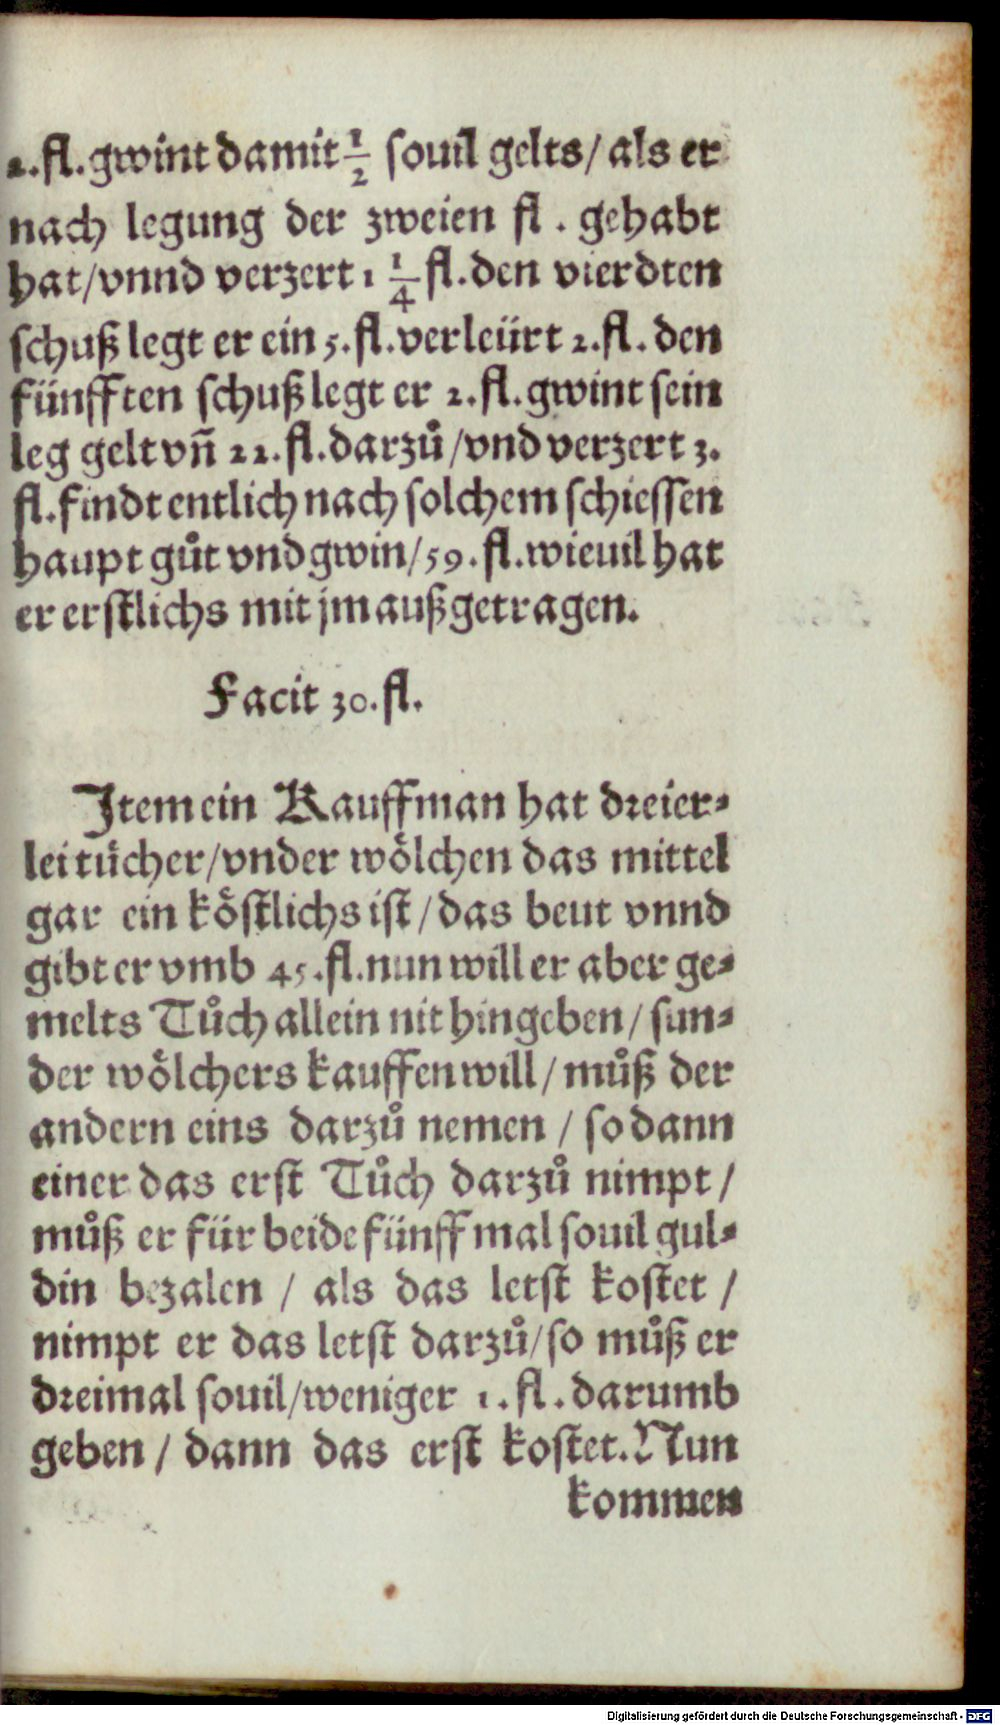 2.fl.gwint damit 1/2 souil gelts/als er
nach legung der zweien fl. gehabt
hat/vnnd verzert 1 1/4 fl.den vierdten
schuß legt er ein 5.fl.verleürt 2.fl.den
fünfften schuß legt er 2.fl.gwint sein
leg gelt vñ 22.fl.darzů/vnd verzert 3.
fl.findt entlich nach solchem schiessen
haupt gůt vnd gwin/59.fl.wieuil hat
er erstlichs mit jm außgetragen.
Facit 30.fl.
Item ein Kauffman hat dreier⸗
lei tücher/vnder wölchen das mittel
gar ein köstlichs ist/das beut vnnd
gibt er vmb 45.fl.nun will er aber ge⸗
melts Tůch allein nit hingeben/sun⸗
der wölchers kauffen will/můß der
andern eins darzů nemen/so dann
einer das erst Tůch darzů nimpt/
můß er für beide fünff mal souil gul⸗
din bezalen/als das letst kostet/
nimpt er das letst darzů/so můß er
dreimal souil/weniger 1.fl.darumb
geben/dann das erst kostet.Nun
kommen
Digitalisierung gefördert durch die Deutsche Forschungsgemeinschaft - DFG